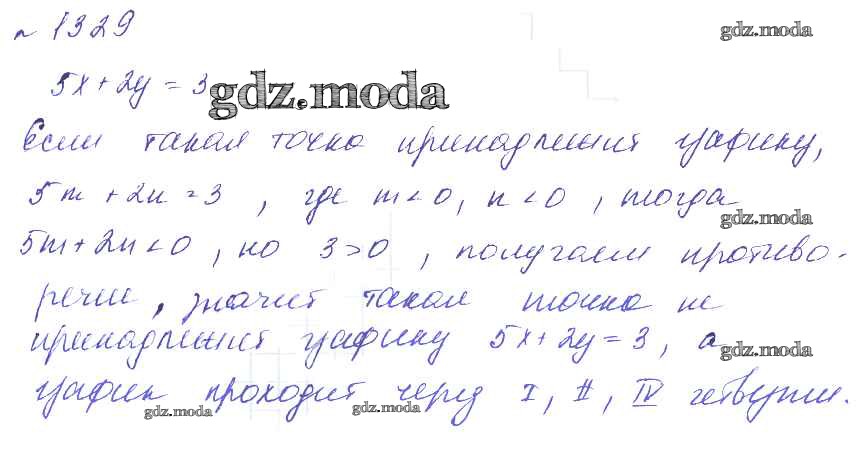 № 1329
gdz.moda
5x + 2y = 3
gdz.moda
Если такая точка принадлежит графику,
5m + 2n = 3, где m < 0, n < 0, тогда
gdz.moda
5m + 2n < 0, но 3 > 0, получаем противо-
речие, значит такая точка не
принадлежит графику 5x + 2y = 3, а
gdz.moda
график проходит через I, II, IV четверти.
gdz.moda gdz.moda